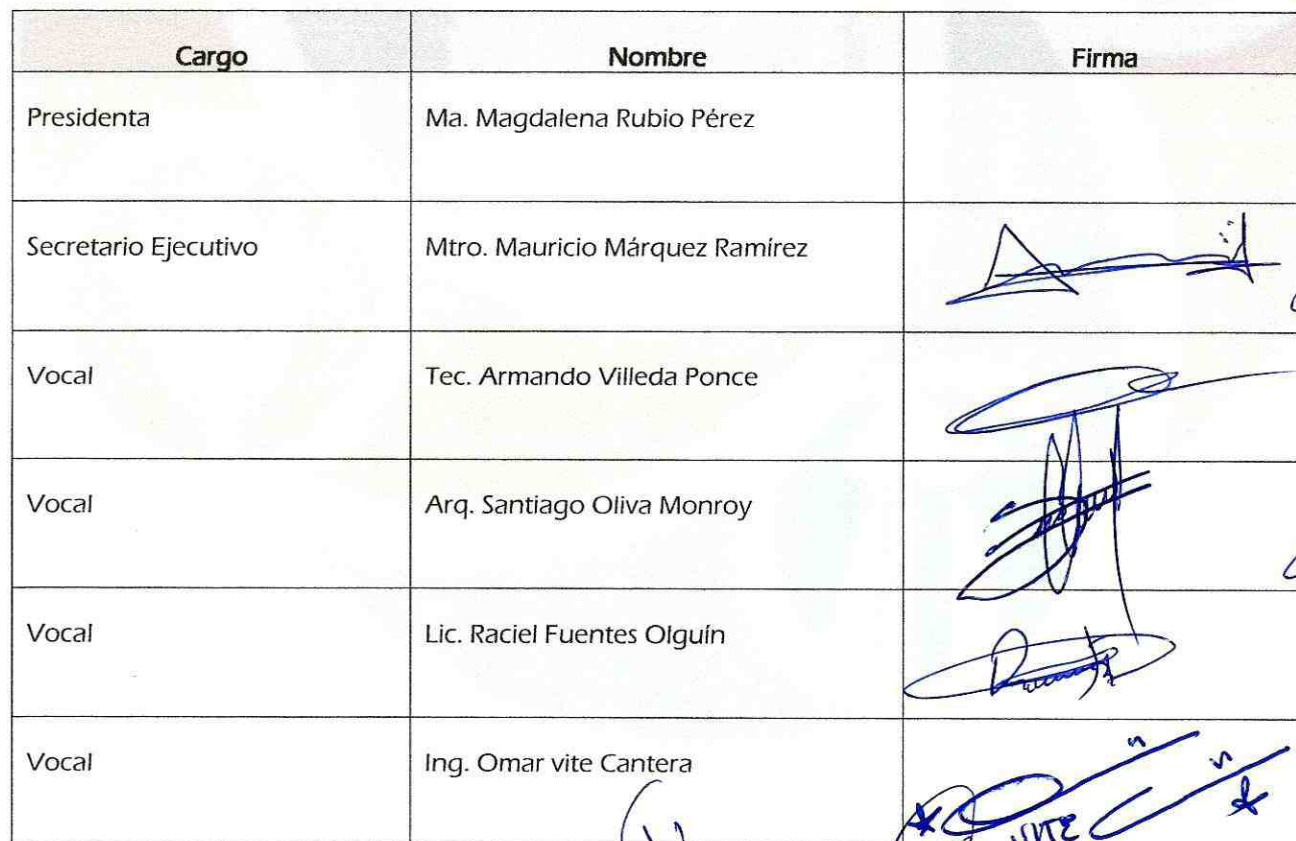 Cargo Nombre Firma
Presidenta Ma. Magdalena Rubio Pérez
Secretario Ejecutivo Mtro. Mauricio Márquez Ramírez
Vocal Tec. Armando Villeda Ponce
Vocal Arq. Santiago Oliva Monroy
Vocal Lic. Raciel Fuentes Olguín
Vocal Ing. Omar vite Cantera
VITE